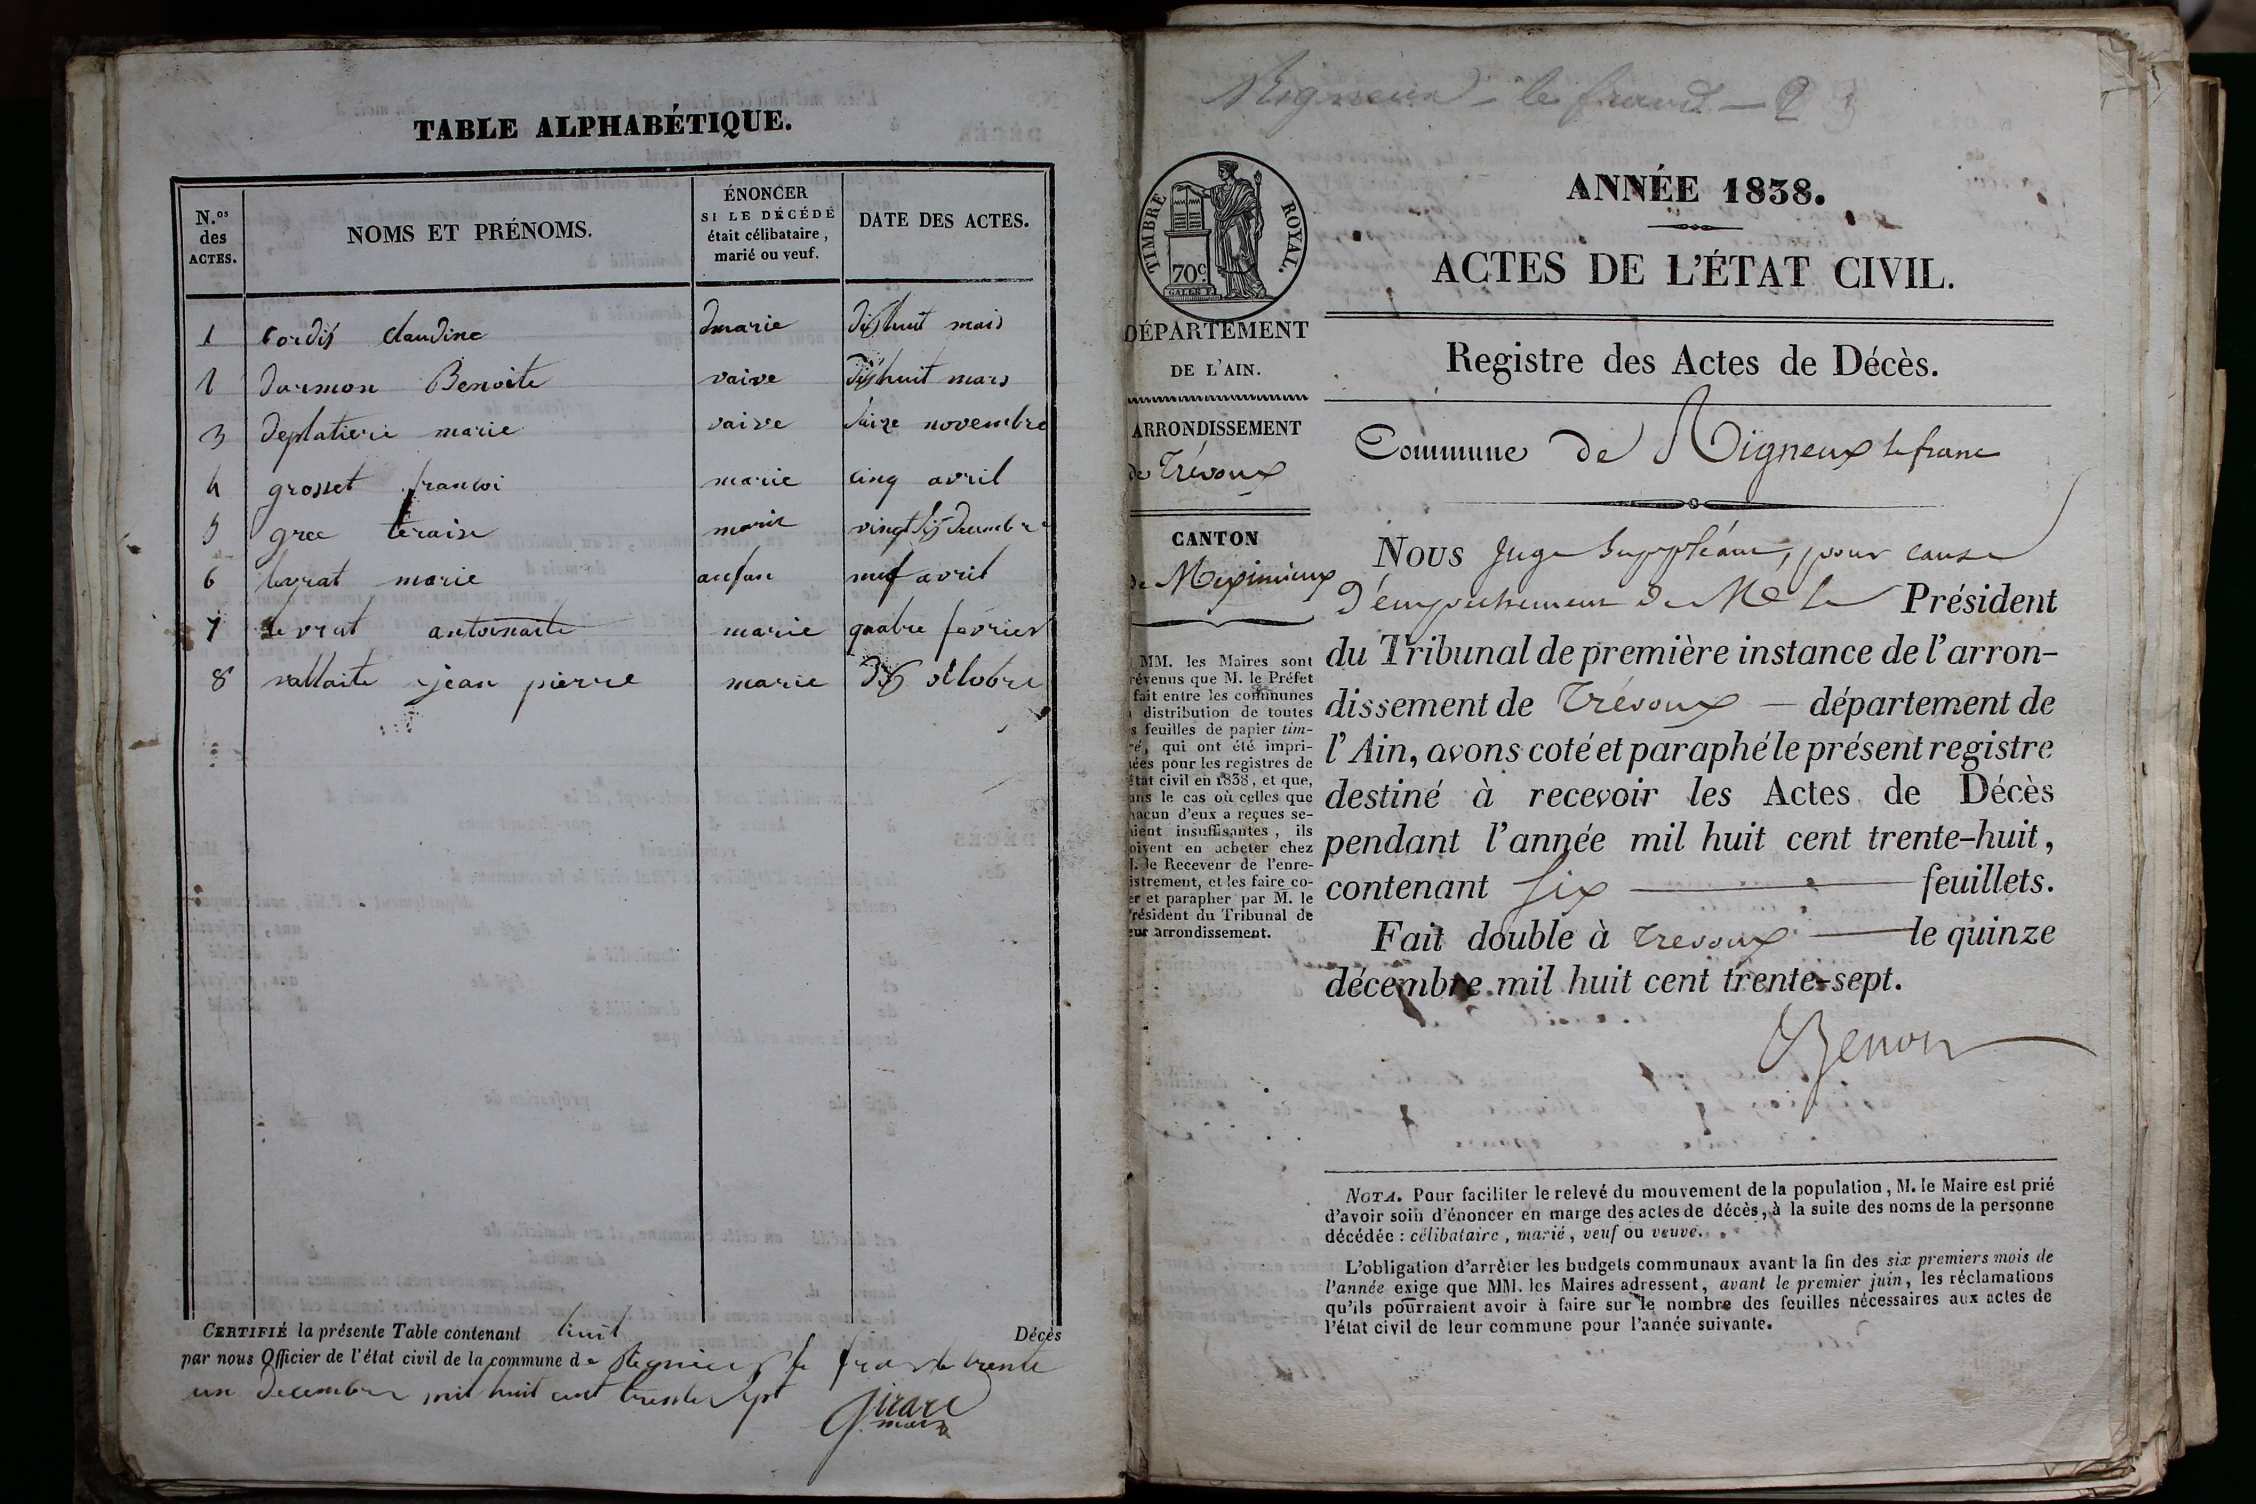 TABLE ALPHABÉTIQUE.
N.os des ACTES.
NOMS ET PRÉNOMS.
ÉNONCER
SI LE DÉCÉDÉ
était célibataire,
marié ou veuf.
DATE DES ACTES.
1 Cordis claudine marie dishuit mars
2 darmon Benoite vaive dishuit mars
3 deplatiere marie vaive saize novembre
4 grosset francoi marie cinq avril
5 gree teraise marie vingt six decembre
6 levrat marie anfan neuf avril
7 levrat antoinaite marie quatre fevrier
8 vallaite jean pierre marie dix octobre
CERTIFIÉ la présente Table contenant huit Décès
par nous Officier de l'état civil de la commune de Rignieux le fran le trente
un decembre mil huit cent trente sept
girard
maire
Rigneux - le franc - 2 3
TIMBRE ROYAL.
70c
DÉPARTEMENT
DE L'AIN.
ARRONDISSEMENT
de Trévoux
CANTON
de Meximieux
MM. les Maires sont
révenus que M. le Préfet
fait entre les communes
distribution de toutes
s feuilles de papier tim-
ré, qui ont été impri-
ées pour les registres de
état civil en 1838, et que,
ans le cas où celles que
hacun d'eux a reçues se-
aient insuffisantes, ils
oivent en acheter chez
. le Receveur de l'enre-
istrement, et les faire co-
er et parapher par M. le
résident du Tribunal de
eur arrondissement.
ANNÉE 1838.
ACTES DE L'ÉTAT CIVIL.
Registre des Actes de Décès.
Commune de Rigneux le franc
Nous Juge Suppléant, pour cause
d'empêchement de Mr le Président
du Tribunal de première instance de l'arron-
dissement de Trévoux — département de
l'Ain, avons coté et paraphé le présent registre
destiné à recevoir les Actes de Décès
pendant l'année mil huit cent trente-huit,
contenant Six — feuillets.
Fait double à Trevoux — le quinze
décembre mil huit cent trente-sept.
NOTA. Pour faciliter le relevé du mouvement de la population, M. le Maire est prié
d'avoir soin d'énoncer en marge des actes de décès, à la suite des noms de la personne
décédée : célibataire, marié, veuf ou veuve.
L'obligation d'arrêter les budgets communaux avant la fin des six premiers mois de
l'année exige que MM. les Maires adressent, avant le premier juin, les réclamations
qu'ils pourraient avoir à faire sur le nombre des feuilles nécessaires aux actes de
l'état civil de leur commune pour l'année suivante.